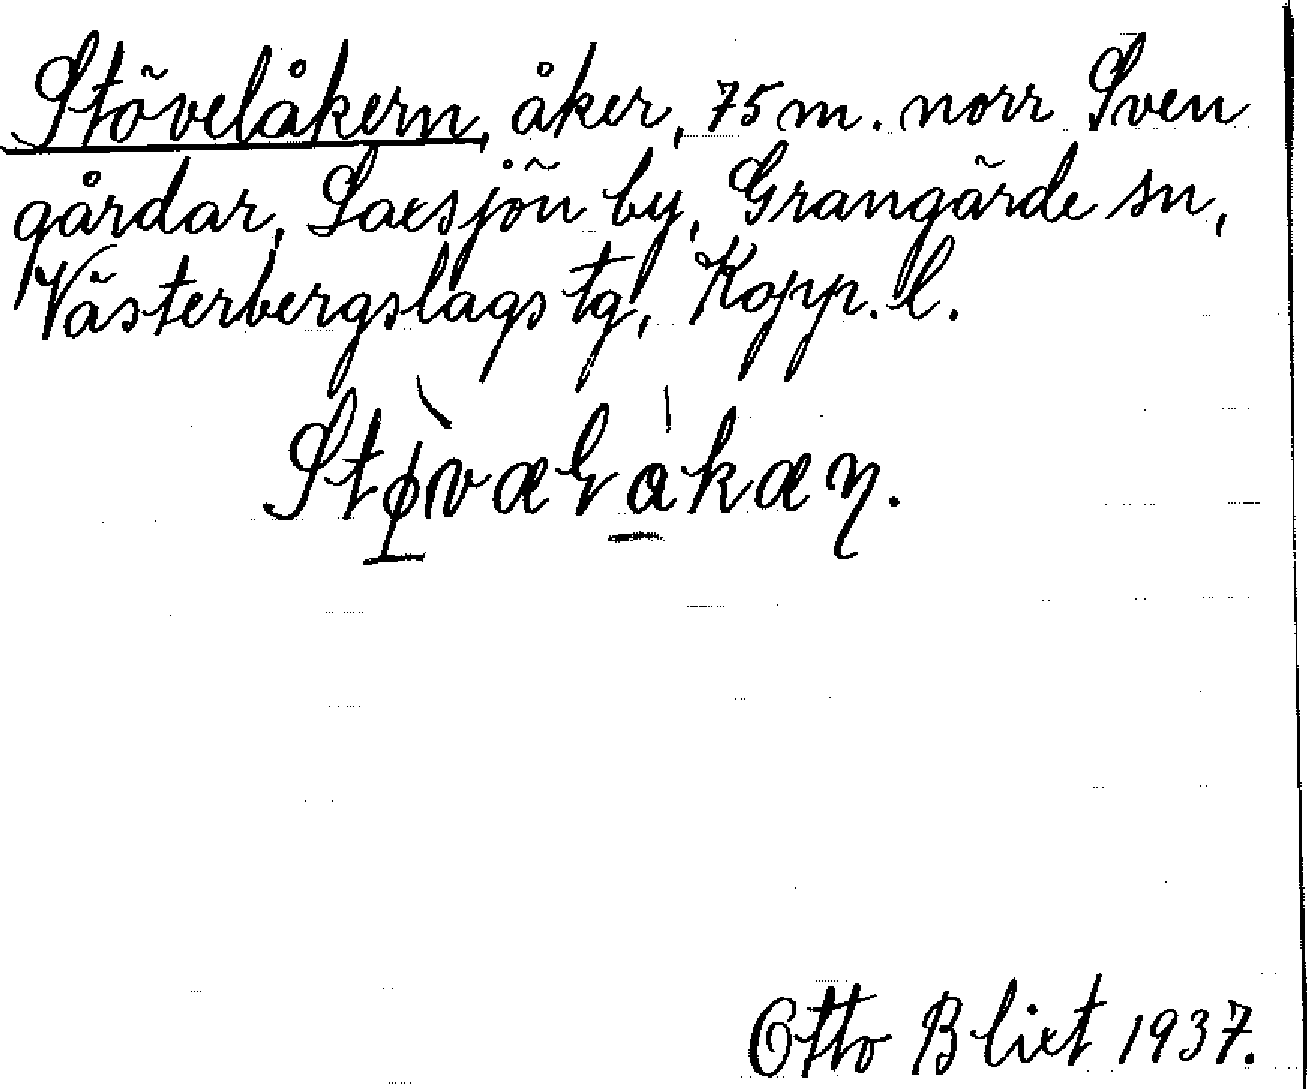 Stövelåkern, åker, 75 m. norr Sven
gårdar, Saxsjön by, Grangärde sn,
Västerbergslags tg, Kopp. l.
Otto Blixt 1937.